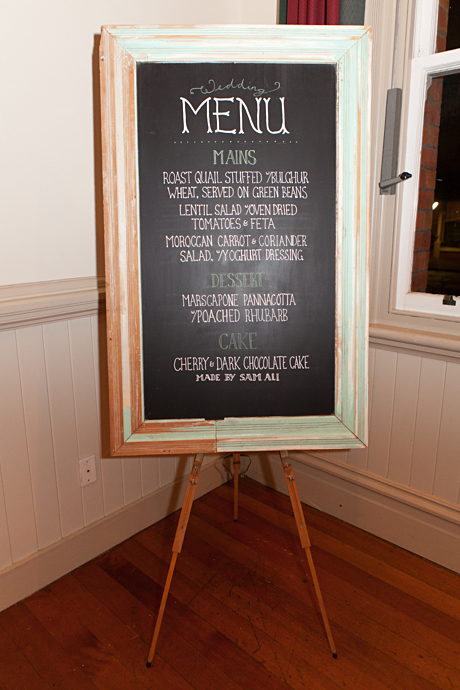 Wedding
MENU
MAINS
ROAST QUAIL STUFFED W/BULGHUR
WHEAT, SERVED ON GREEN BEANS
LENTIL SALAD W/OVEN DRIED
TOMATOES & FETA
MOROCCAN CARROT & CORIANDER
SALAD, W/YOGHURT DRESSING
DESSERT
MARSCAPONE PANNACOTTA
W/POACHED RHUBARB
CAKE
CHERRY & DARK CHOCOLATE CAKE
MADE BY SAM ALI